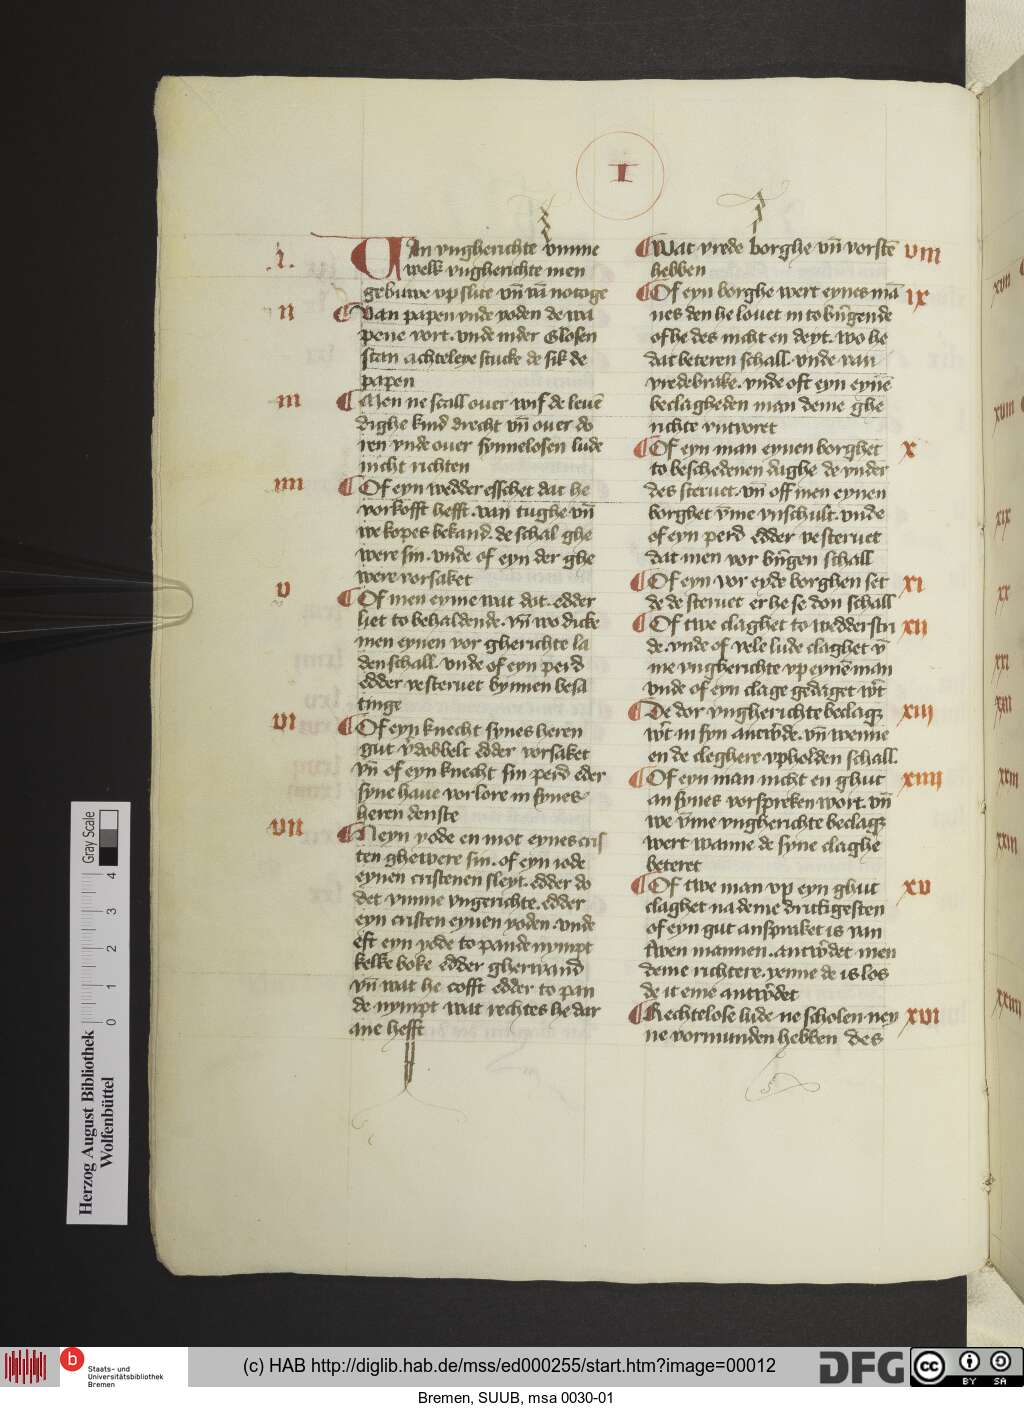 I
.i. Uan vngherichte vmme
welk vngherichte men
gebuwe vp slite vn̄ vā notoge
ii Uan papen vnde yoden de wa
pene vort. vnde inder Glosen
stan achteleye stucke de sik de
papen
iii Men ne scall ouer wif de leuē
dighe kind drecht vn̄ ouer do
ren vnde ouer synnelosen lude
nicht richten
iiii Of eyn wedder esschet dat he
vorkofft hefft. van tughe vn̄
we kopes bekand. de schal ghe
were sin. vnde of eyn der ghe
were vorsaket
v Of men eyme wat dot. edder
liet to behaldende. vn̄ wo dicke
men eynen vor gherichte la
den schall. vnde of eyn perd
edder ve steruet bynnen besa
tinge
vi Of eyn knecht synes heren
gut v̄dobbelt edder vorsaket
vn̄ of eyn knecht sin perd eder
syne haue vorlore in synes
heren denste
vii Neyn yode en mot eynes cris
ten ghewere sin. of eyn iode
eynen cristenen sleyt. edder do
det vmme vngerichte. edder
eyn cristen eynen yoden. vnde
eft eyn yode to pande nympt
kelke boke edder gherwand
vn̄ wat he cofft edder to pan
de nympt wat rechtes he dar
ane hefft
Wat vrede borghe vn̄ vorstē viii
hebben
Of eyn borghe wert eynes mā ix
nes den he louet in to br̄gende
of he des nicht en deyt. wo he
dat beteren schall. vnde van
vredebrake. vnde oft eyn eynē
beclagheden man deme ghe
richte vntvoret
Of eyn man eynen borghet x
to beschedenen daghe de vnder
des steruet. vn̄ off men eynen
borghet v̄me vnschult. vnde
of eyn perd edder ve steruet
dat men vor br̄gen schall
Of eyn vor eyde borghen set xi
de de steruet er he se don schall
Of twe claghet to wedderstri xii
de. vnde of vele lude claghet v̄
me vngherichte vp eynē man
vnde of eyn clage gedaget w̄t
De dor vngherichte beclaget xiii
w̄t in syn antw̄de. vn̄ wenne
en de cleghere vpholden schall.
Of eyn man nicht en ghut xiiii
an synes vorspreken wort. vn̄
we v̄me vngherichte beclaget
wert wanne de syne claghe
beteret
Of twe man vp eyn ghut xv
claghet na deme drittigesten
of eyn gut anspraket is van
twen mannen. antw̄det men
deme richtere. venne de is los
de it eme antw̄det
Rechtelose lude ne scholen ney xvi
ne vormunden hebben des
xvii
xviii
xix
xx
xxi
xxii
xxiii
Gray Scale
0 1 2 3 4
Herzog August Bibliothek
Wolfenbüttel
b
Staats- und
Universitätsbibliothek
Bremen
(c) HAB http://diglib.hab.de/mss/ed000255/start.htm?image=00012
DFG
cc BY SA
Bremen, SUUB, msa 0030-01